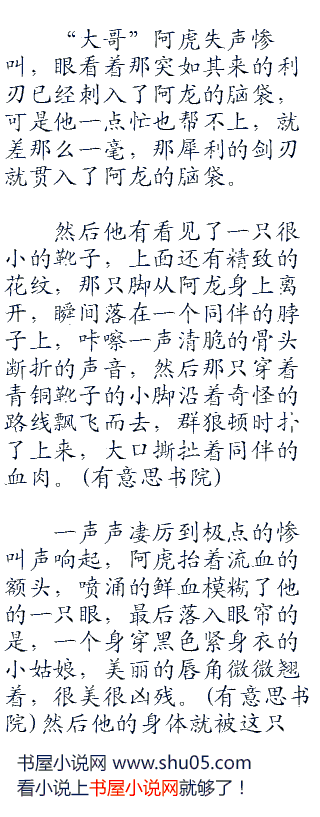 “大哥”阿虎失声惨
叫，眼看着那突如其来的利
刃已经刺入了阿龙的脑袋，
可是他一点忙也帮不上，就
差那么一毫，那犀利的剑刃
就贯入了阿龙的脑袋。
然后他有看见了一只很
小的靴子，上面还有精致的
花纹，那只脚从阿龙身上离
开，瞬间落在一个同伴的脖
子上，咔嚓一声清脆的骨头
断折的声音，然后那只穿着
青铜靴子的小脚沿着奇怪的
路线飘飞而去，群狼顿时扑
了上来，大口撕扯着同伴的
血肉。(有意思书院)
一声声凄厉到极点的惨
叫声响起，阿虎抬着流血的
额头，喷涌的鲜血模糊了他
的一只眼，最后落入眼帘的
是，一个身穿黑色紧身衣的
小姑娘，美丽的唇角微微翘
着，很美很凶残。(有意思书
院)然后他的身体就被这只
书屋小说网 www.shu05.com
看小说上书屋小说网就够了！